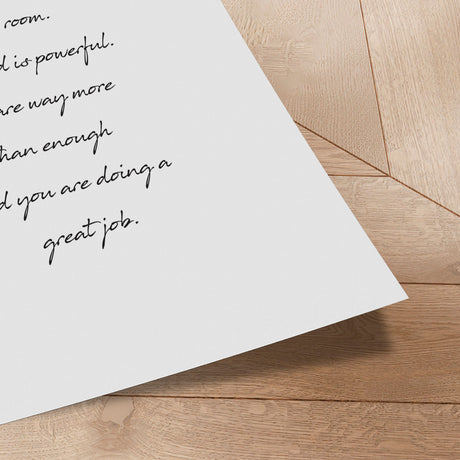 room.
is powerful.
are way more
than enough
you are doing a
great job.